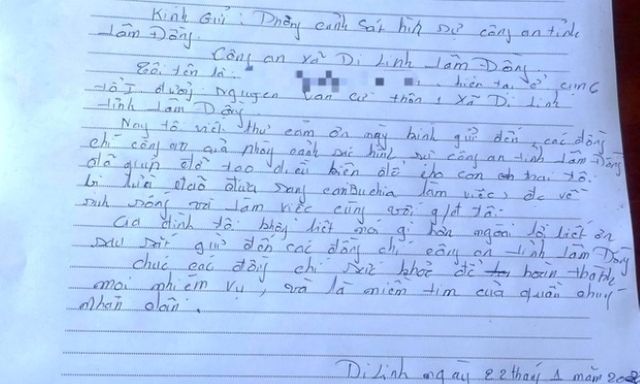 Kính Gửi: Phòng cảnh sát hình sự công an tỉnh
Lâm Đồng.
Công an xã Di Linh Lâm Đồng.
Tôi tên là. hiện tại ở
tổ I đường Nguyen Van cừ thôn 1 xã Di Linh
tỉnh Lâm Đồng
Nay tô viết thư cảm ơn này kính gửi đến các đồng
chí công an phòng cảnh sát hình sự công an tỉnh Lâm Đồng
đã giúp đở tạo điều kiện để cho con trai tôi
bị lừa đảo đưa sang canBuchia làm việc, đc về
sinh sống và làm việc cùng với g/đt tôi.
Gia đình tôi không biết nói gì hơn ngoài lời biết ơn
sâu sắc gửi đến các đồng chí công an tỉnh Lâm Đồng
chúc các đồng chí sức khỏe để hoàn thành
mọi nhiệm vụ, và là niềm tin của quần chúng
nhân dân.
Di Linh ngày 22 tháng 1 năm